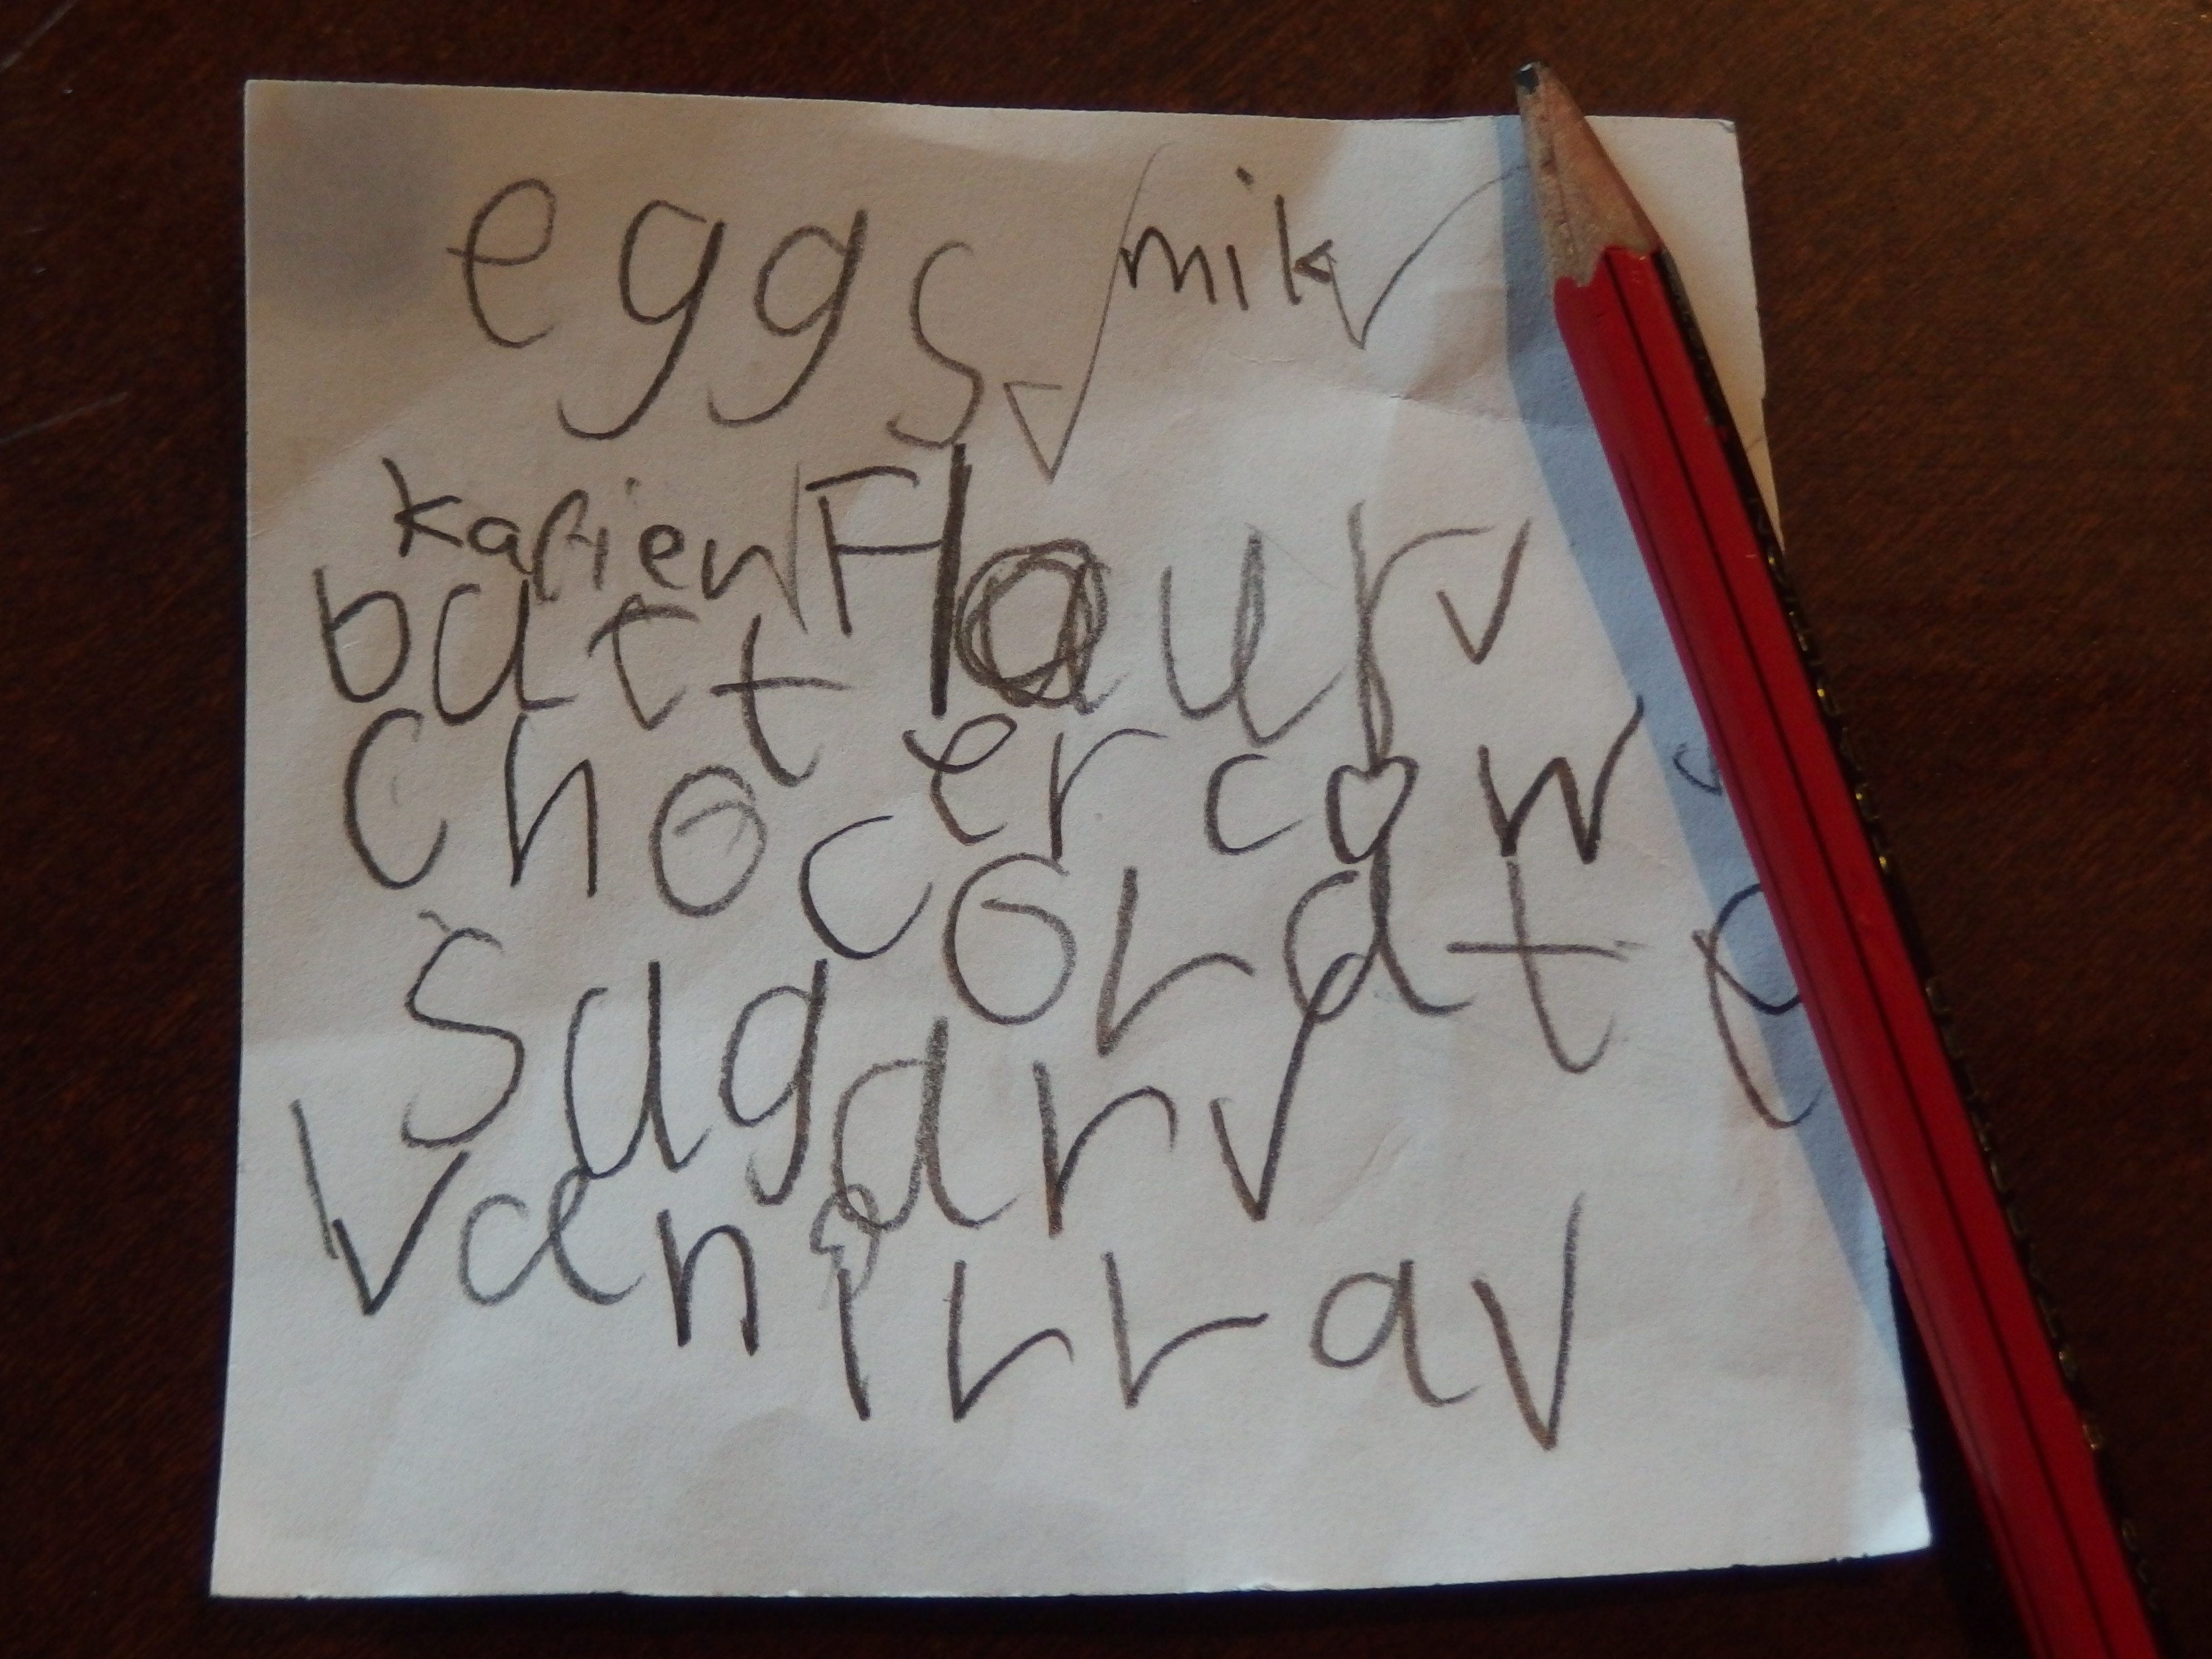 eggs ✓ mik ✓
kafien ✓ Flour ✓
batter cow
chocoLate
sugar ✓
vaniLLa ✓